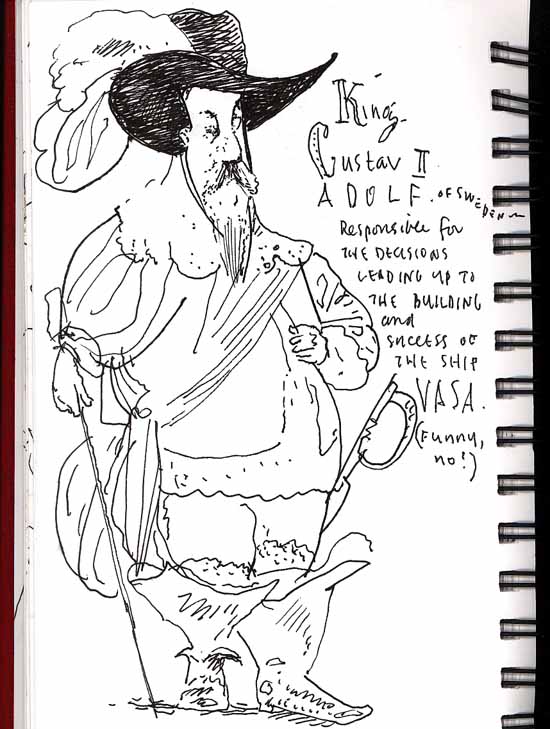 King
Gustav II
ADOLF. OF SWEDEN
Responsible for
THE DECISIONS
LEADING UP TO
THE BUILDING
and
SUCCESS OF
THE SHIP
VASA.
(Funny,
no?)